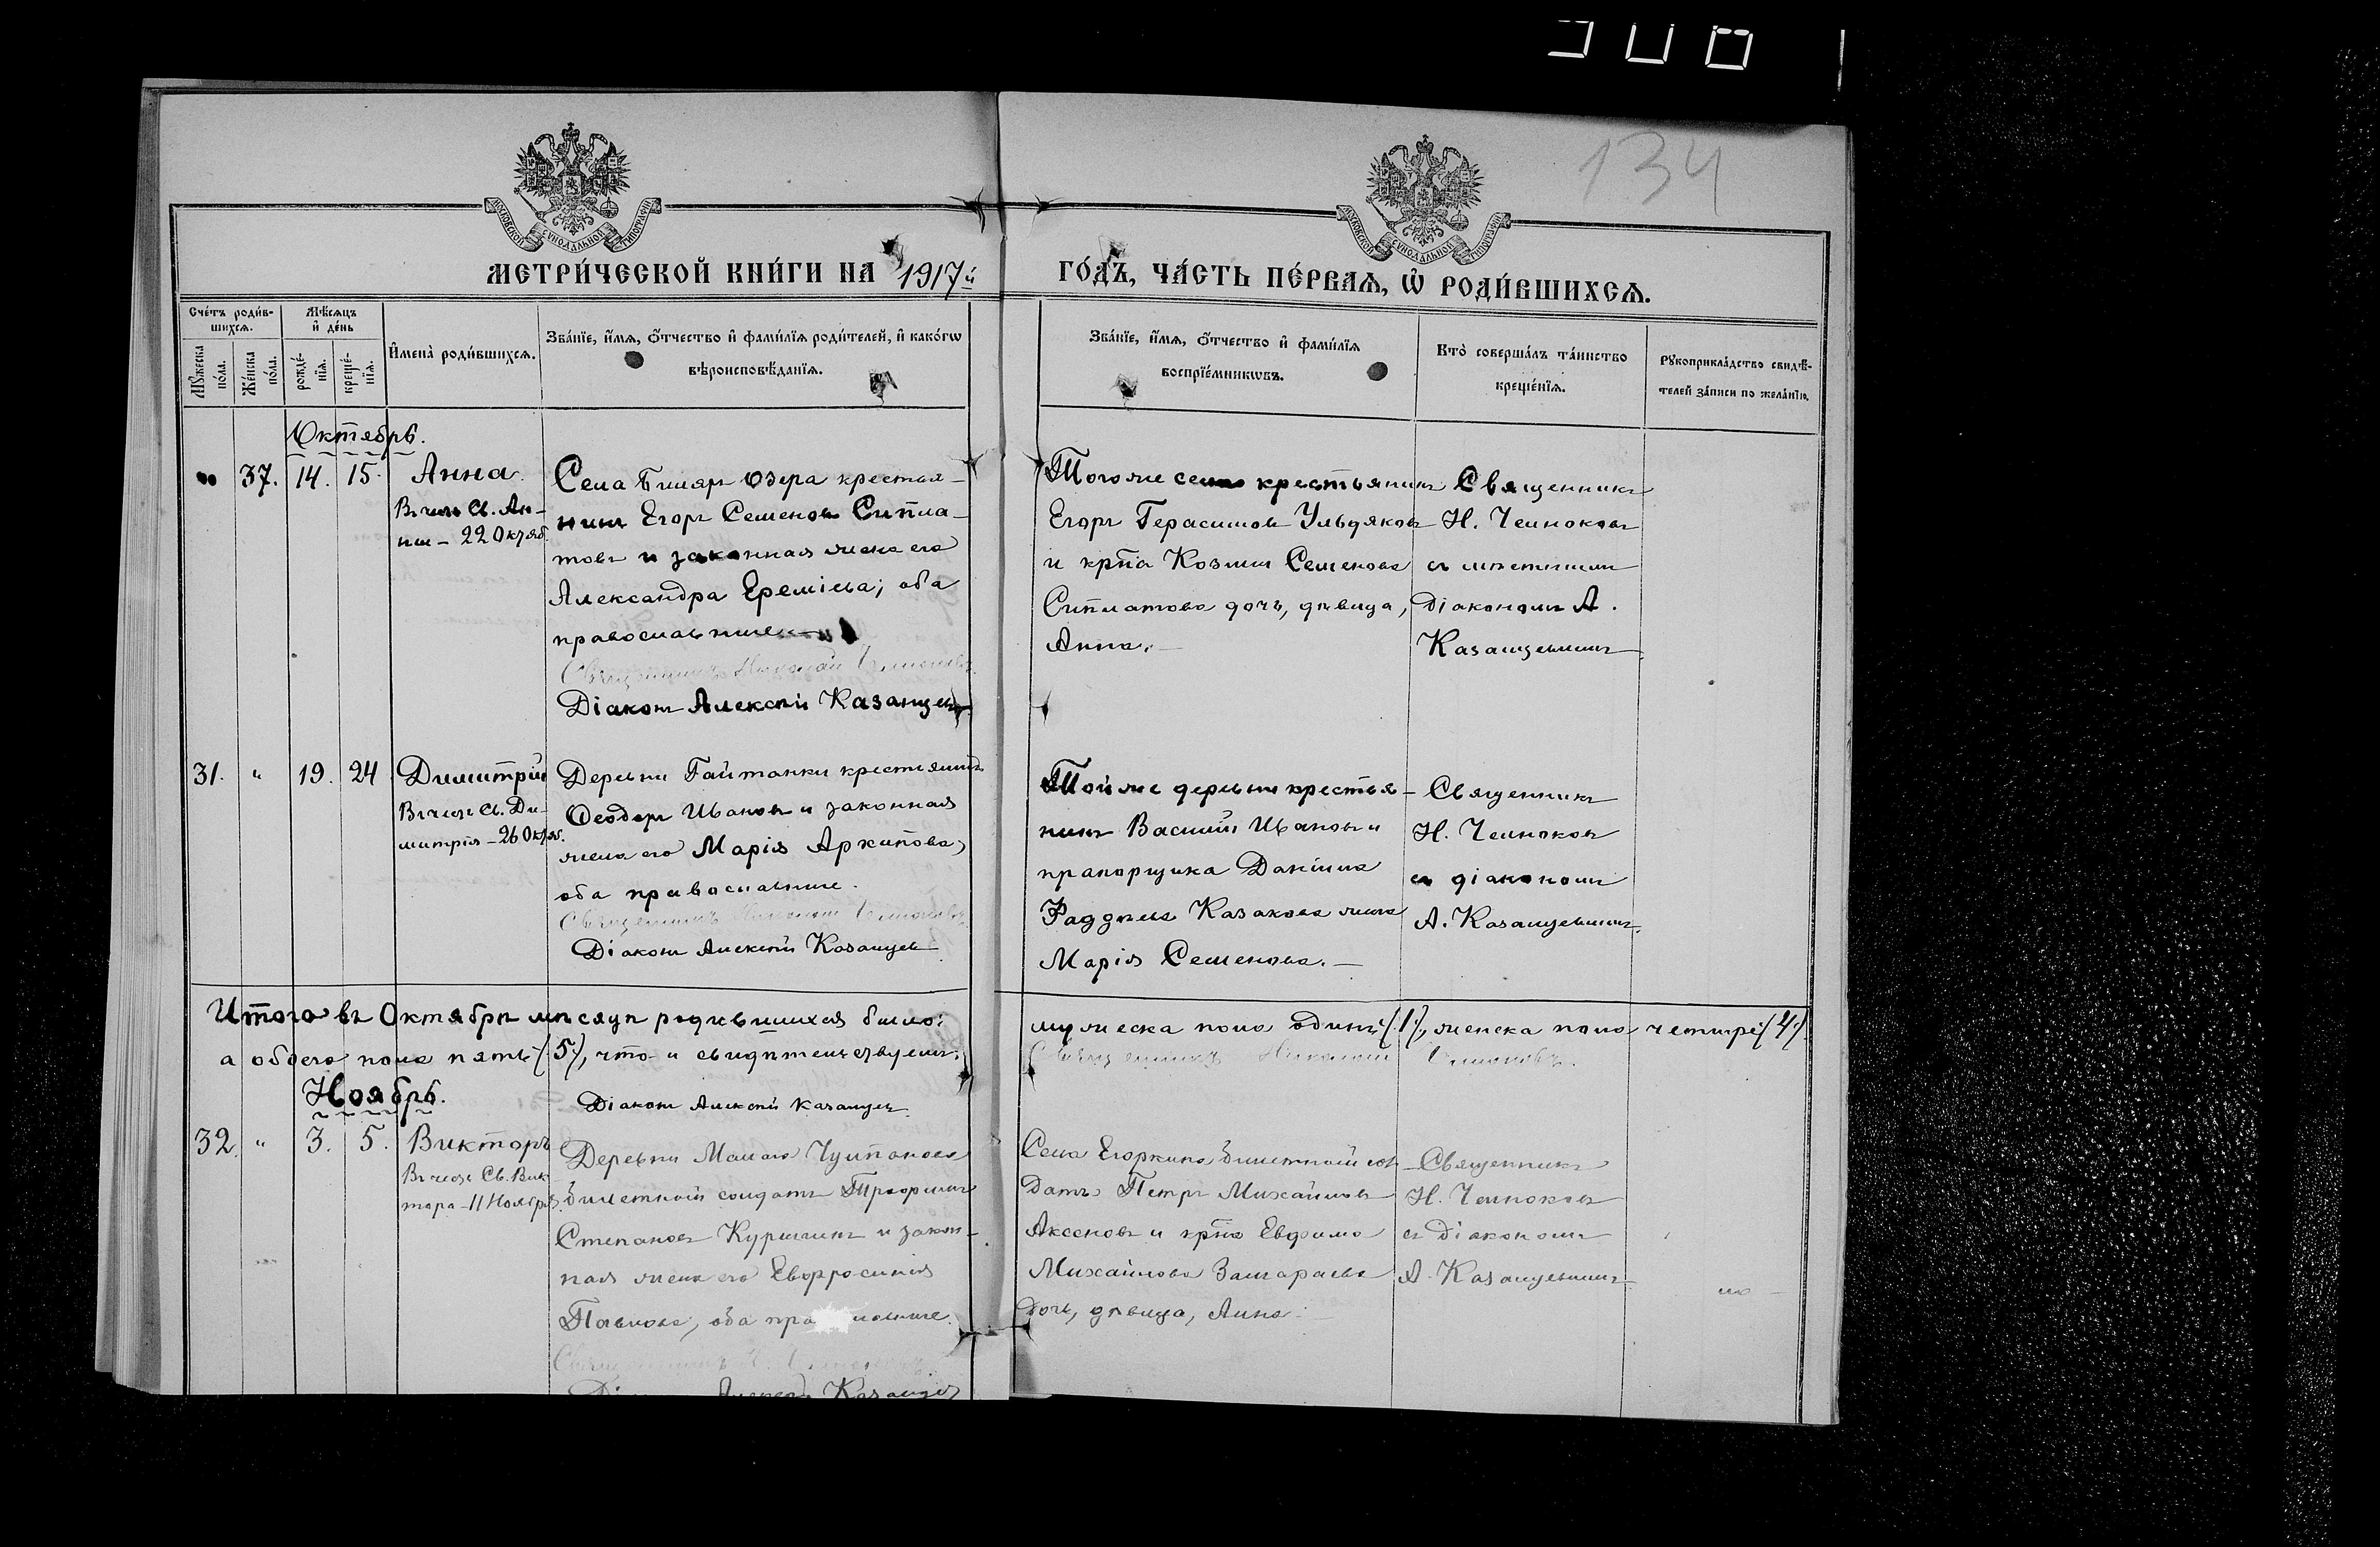 134
МОСКОВСКОЙ СѴНОДАЛЬНОЙ ТИПОГРАФІИ
МОСКОВСКОЙ СѴНОДАЛЬНОЙ ТИПОГРАФІИ
МЕТРИ́ЧЕСКОЙ КНИ́ГИ НА 1917й ГО́ДЪ, ЧА́СТЬ ПЕ́РВАѦ, Ѡ҆ РОДИ́ВШИХСѦ.
Сче́тъ роди́в-
шихсѧ.
Мꙋ́жеска
по́ла.
Же́нска
по́ла.
Мѣ́сѧцъ
и҆ де́нь
рожде́-
нїѧ.
креще́-
нїѧ.
И҆мена̀ роди́вшихсѧ.
Зва́нїе, и҆́мѧ, ѻ҆́тчество и҆ фами́лїѧ роди́телей, и҆ како́гѡ
вѣроисповѣ́данїѧ.
Зва́нїе, и҆́мѧ, ѻ҆́тчество и҆ фами́лїѧ
воспрїе́мникѡвъ.
Кто̀ соверша́лъ та́инство
креще́нїѧ.
Рꙋкоприкла́дство свидѣ́-
телей за́писи по жела́нїю.
Октябрь.
„ 37. 14. 15. Анна.
Въ честь Св. Ан-
ны - 22 Октяб.
Села Биляръ Озера крестья-
нинъ Егоръ Семеновъ Сипла-
товъ и законная жена его
Александра Ереміева; оба
православные
Священникъ Николай Челноковъ
Діаконъ Алексѣй Казанцевъ
Тогоже села крестьянинъ
Егоръ Герасимовъ Ульдяковъ
и крна Козмы Семенова
Сиплатова дочь, дѣвица,
Анна. —
Священникъ
Н. Челноковъ
съ мѣстнымъ
Діакономъ А.
Казанцевымъ.
31. „ 19. 24 Димитрій
Въ честь Св. Ди-
митрія - 26 Октяб.
Деревни Гайтанки крестьянинъ
Ѳеодоръ Ивановъ и законная
жена его Марія Архипова;
оба православные.
Священникъ Николай Челноковъ
Діаконъ Алексѣй Казанцевъ
Тойже деревни крестья-
нинъ Василій Ивановъ и
прапорщика Даніила
Фаддѣева Казакова жена
Марія Семенова. —
Священникъ
Н. Челноковъ
съ діакономъ
А. Казанцевымъ.
Итого въ Октябрѣ мѣсяцѣ родившихся было: мужеска пола одинъ (1), женска пола четыре (4)
а обоего пола пять (5), что и свидѣтельствуемъ: Священникъ Николай Челноковъ.
Діаконъ Алексѣй Казанцевъ
Ноябрь.
32. „ 3. 5. Викторъ
Въ честь Св. Вик-
тора - 11 Ноября.
Деревни Малаго Чултанова
билетный солдатъ Трофимъ
Степановъ Куршинъ и закон-
ная жена его Евфросинія
Павлова, оба пра лавные.
Священникъ Н. Челноковъ
Алексѣй Казанцевъ
Села Егоркина билетный сол-
датъ Петръ Михайловъ
Аксеновъ и крна Евфима
Михайлова Зашараева
дочь, дѣвица, Анна.
Священникъ
Н. Челноковъ
съ Діакономъ
А. Казанцевымъ